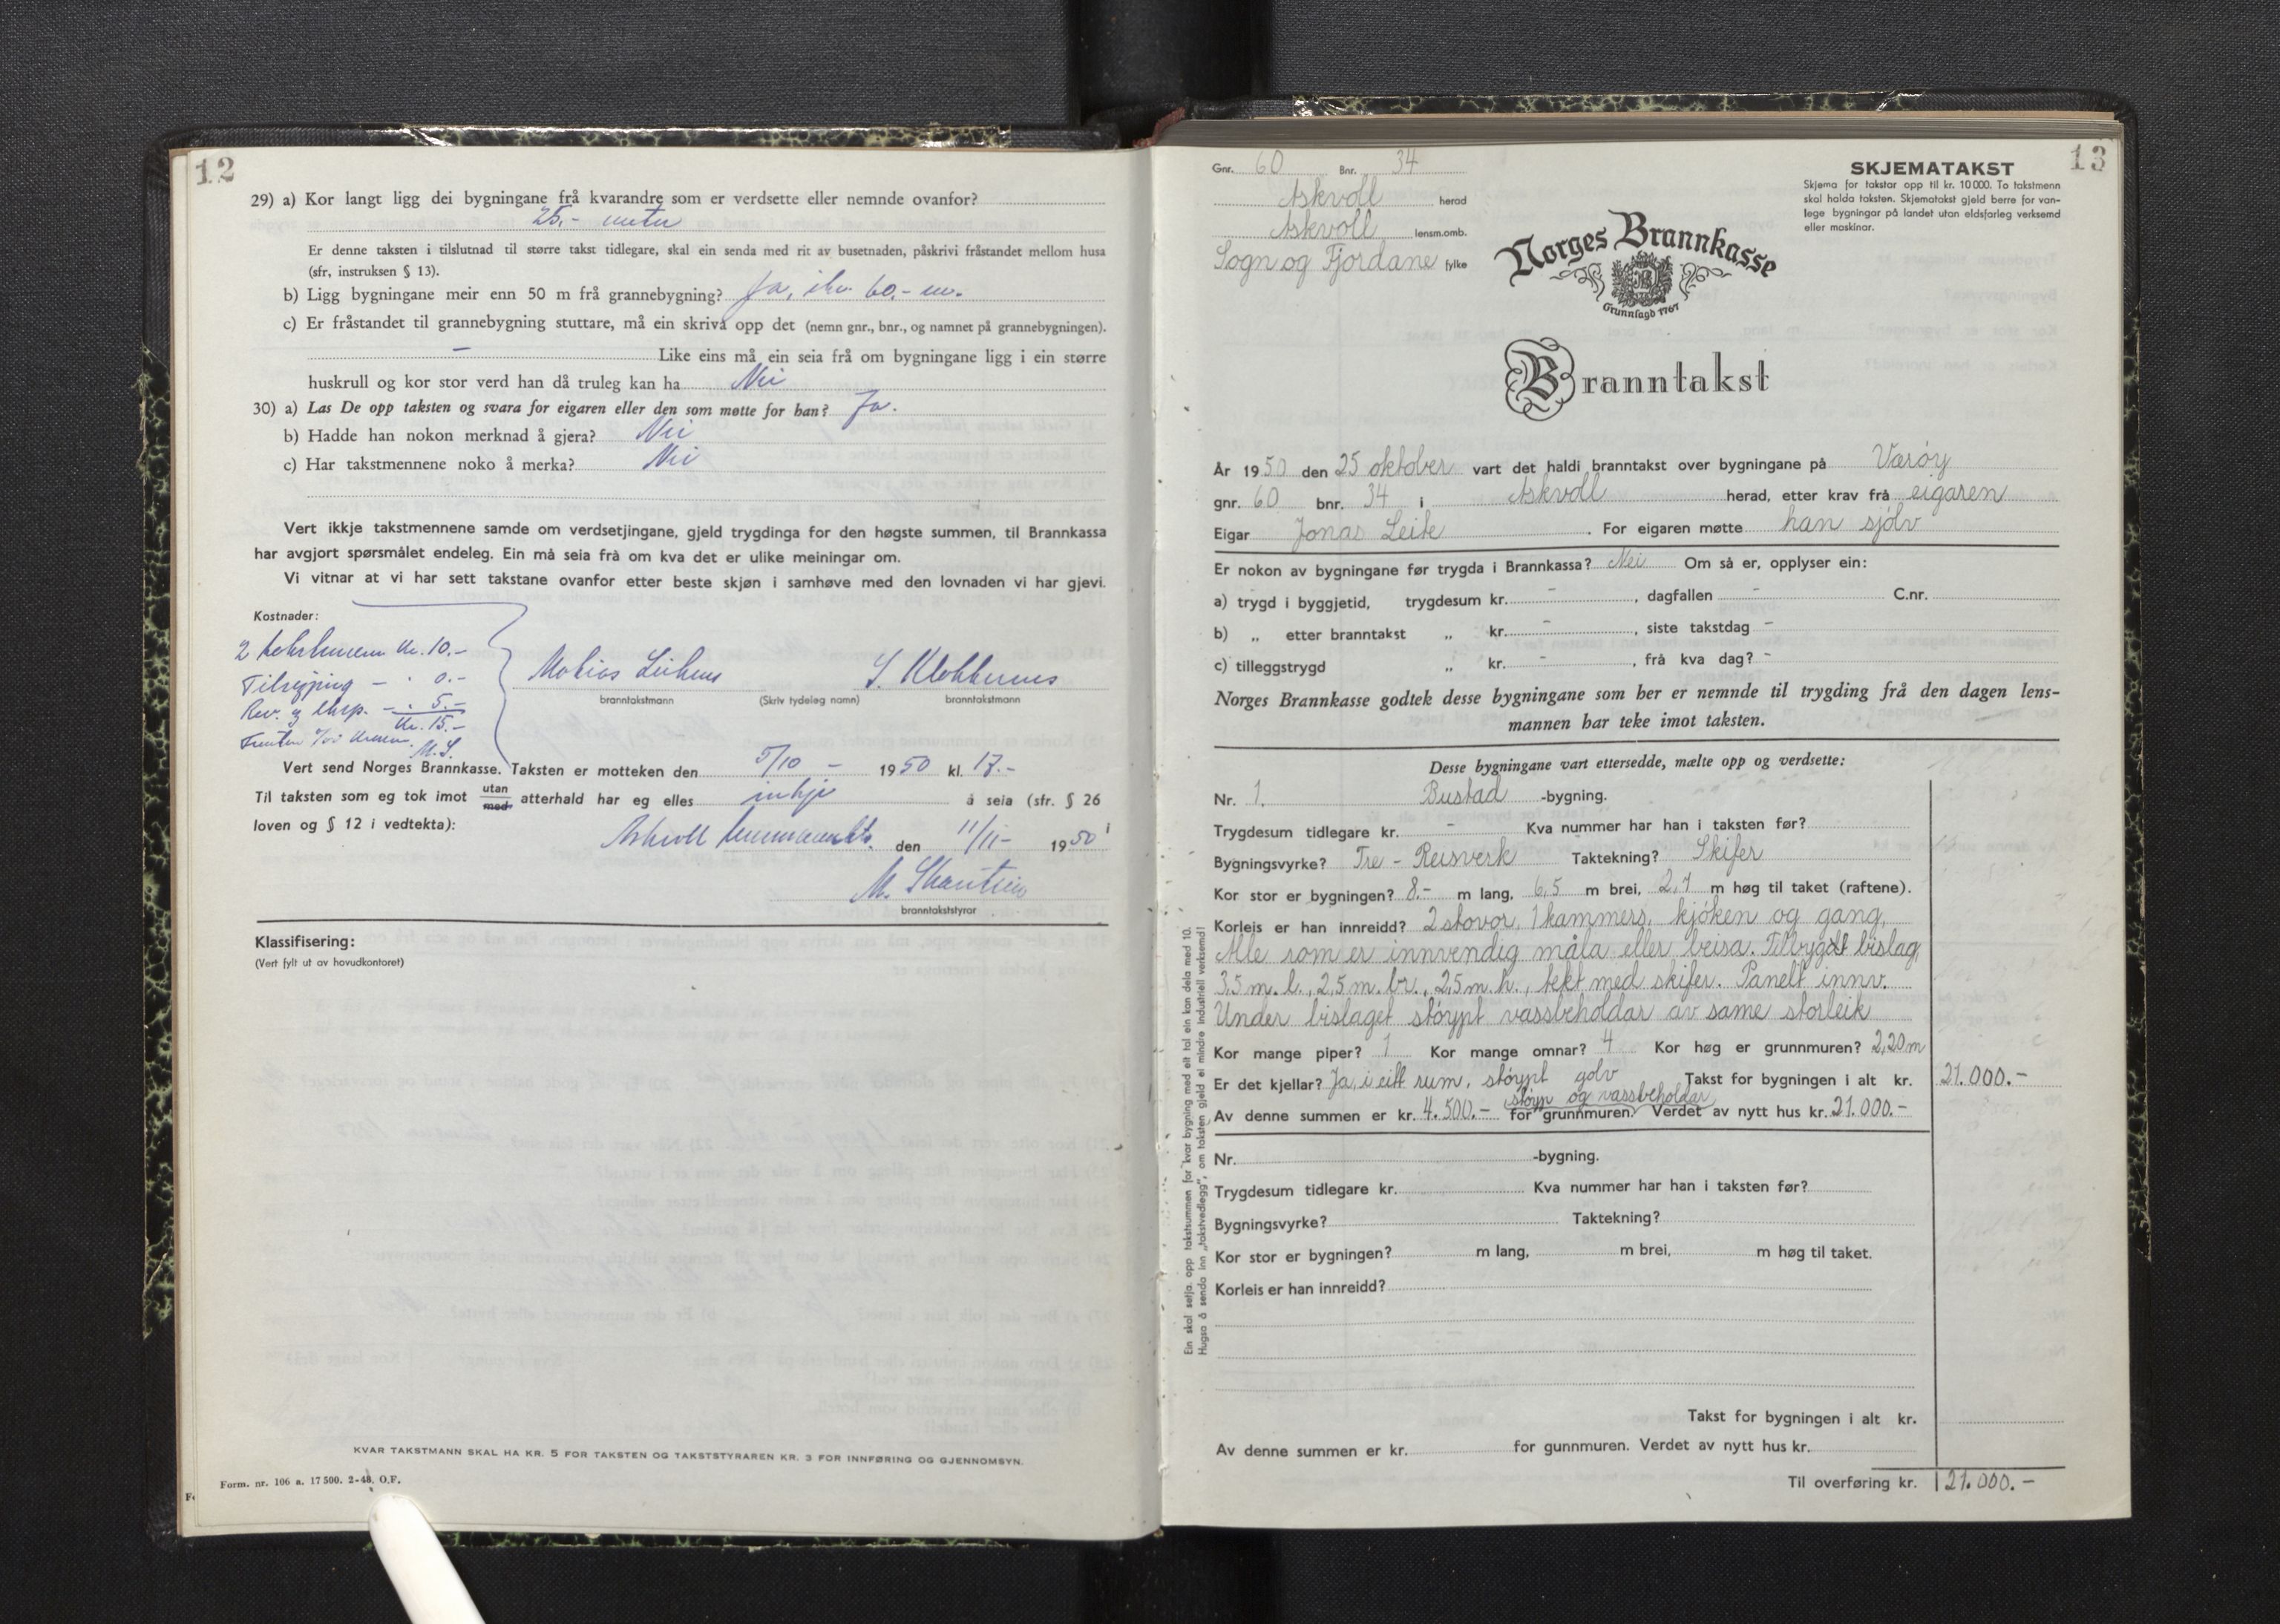 12
29) a) Kor langt ligg dei bygningane frå kvarandre som er verdsette eller nemnde ovanfor?
25.- meter
Er denne taksten i tilslutnad til større takst tidlegare, skal ein senda med rit av busetnaden, påskrivi fråstandet mellom husa
(sfr, instruksen § 13).
b) Ligg bygningane meir enn 50 m frå grannebygning? Ja, 60.- m.
c) Er fråstandet til grannebygning stuttare, må ein skriva opp det (nemn gnr., bnr., og namnet på grannebygningen).
– Like eins må ein seia frå om bygningane ligg i ein større
huskrull og kor stor verd han då truleg kan ha Nei
30) a) Las De opp taksten og svara for eigaren eller den som møtte for han? Ja.
b) Hadde han nokon merknad å gjera? Nei
c) Har takstmennene noko å merka? Nei
Vert ikkje takstmennene samde om verdsetjingane, gjeld trygdinga for den høgste summen, til Brannkassa
har avgjort spørsmålet endeleg. Ein må seia frå om kva det er ulike meiningar om.
Vi vitnar at vi har sett takstane ovanfor etter beste skjøn i samhøve med den lovnaden vi har gjevi.
Kostnader:
2 takstmenn kr. 10.-
- " 0.-
Rev. og eksp. - " 5.-
Kr. 15.-
M.S.
S. Klokkernes
branntakstmann (Skriv tydeleg namn) branntakstmann
Vert send Norges Brannkasse. Taksten er motteken den 5/10 - 1950 kl. 17.-
Til taksten som eg tok imot utan med atterhald har eg elles inkje å seia (sfr. § 26 i
loven og § 12 i vedtekta):
Askvoll den 11/11- 1950
branntakststyrar
Klassifisering:
(Vert fylt ut av hovudkontoret)
KVAR TAKSTMANN SKAL HA KR. 5 FOR TAKSTEN OG TAKSTSTYRAREN KR. 3 FOR INNFØRING OG GJENNOMSYN.
Form. nr. 106 a. 17 500. 2-48. O.F.
13
Gnr. 60 Bnr. 34
Askvoll herad
Askvoll lensm.omb.
Sogn og Fjordane fylke
SKJEMATAKST
Skjema for takstar opp til kr. 10 000. To takstmenn
skal halda taksten. Skjematakst gjeld berre for van-
lege bygningar på landet utan eldsfarleg verksemd
eller maskinar.
Norges Brannkasse
Grunnlagd 1767
Branntakst
År 1950 den 25 oktober vart det haldi branntakst over bygningane på Værøy
gnr. 60 bnr. 34 i Askvoll herad, etter krav frå eigaren
Eigar Jonas Leite. For eigaren møtte han sjølv
Er nokon av bygningane før trygda i Brannkassa? Nei Om så er, opplyser ein:
a) trygd i byggjetid, trygdesum kr. - , dagfallen - C.nr.
b) „ etter branntakst „ kr. - , siste takstdag -
c) tilleggstrygd „ kr. - , frå kva dag? -
Norges Brannkasse godtek desse bygningane som her er nemnde til trygding frå den dagen lens-
mannen har teke imot taksten.
Desse bygningane vart ettersedde, mælte opp og verdsette:
Nr. 1. Bustad -bygning.
Trygdesum tidlegare kr. - Kva nummer har han i taksten før?
Bygningsvyrke? Tre - Reisverk Taktekning? Skifer
Kor stor er bygningen? 8.- m lang, 6,5 m brei, 2,7 m høg til taket (raftene).
Korleis er han innreidd? 2 stovor, 1 kammers, kjøken og gang,
Alle som er innvendig måla eller beisa. Tilbygdt bislag,
3,5 m. l., 2,5 m. br., 2,5 m. h., tekt med skifer. Panelt innv.
Under bislaget støypt vassbeholdar av same storleik
Kor mange piper? 1 Kor mange omnar? 4 Kor høg er grunnmuren? 2,20 m
Er det kjellar? Ja, i eitt rum, støypt golv Takst for bygningen i alt kr. 21.000.-
støyp og vassbeholdar
Av denne summen er kr. 4.500.- for grunnmuren. Verdet av nytt hus kr. 21.000.-
Nr. -bygning.
Trygdesum tidlegare kr. Kva nummer har han i taksten før?
Bygningsvyrke? Taktekning?
Kor stor er bygningen? m lang, m brei, m høg til taket.
Korleis er han innreidd?
Takst for bygningen i alt kr.
Av denne summen er kr. for gunnmuren. Verdet av nytt hus kr.
Til overføring kr. 21.000.-
Ein skal setja opp takstsummen for kvar bygning med eit tal ein kan dela med 10.
Hugsa å senda inn „takstvedlegg", om taksten gjeld ei mindre industriell verksemd!